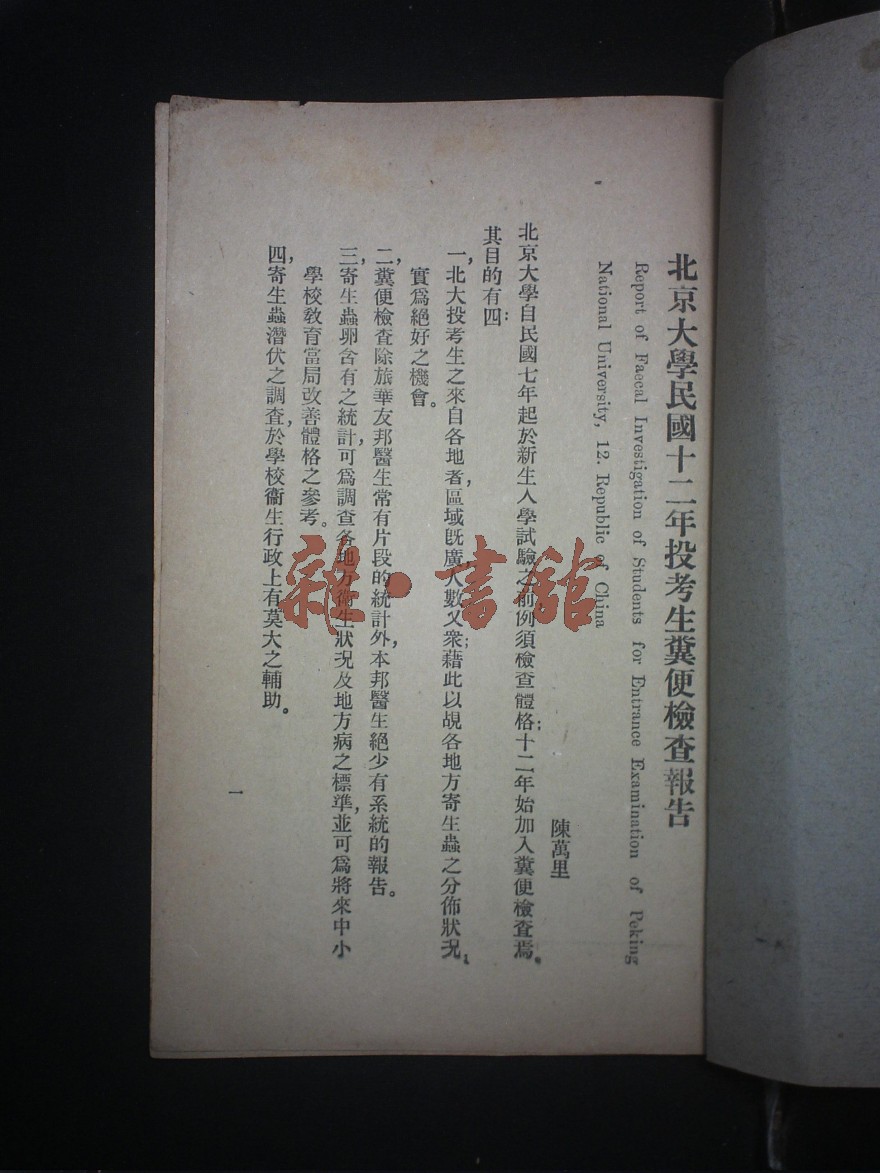 北京大學民國十二年投考生糞便檢查報告
Report of Faecal Investigation of Students for Entrance Examination of Peking
National University, 12. Republic of China
陳萬里
北京大學自民國七年起於新生入學試驗之前例須檢查體格;十二年始加入糞便檢查焉。
其目的有四:
一,北大投考生之來自各地者,區域旣廣,人數又衆;藉此以覘各地方寄生蟲之分佈狀況,
實爲絕好之機會。
二,糞便檢查除旅華友邦醫生常有片段的統計外,本邦醫生絕少有系統的報告。
三,寄生蟲卵含有之統計,可爲調查各地方衞生狀況及地方病之標準,並可爲將來中小
學校敎育當局改善體格之參考。
四,寄生蟲潛伏之調查,於學校衞生行政上有莫大之輔助。
一
雜·書館